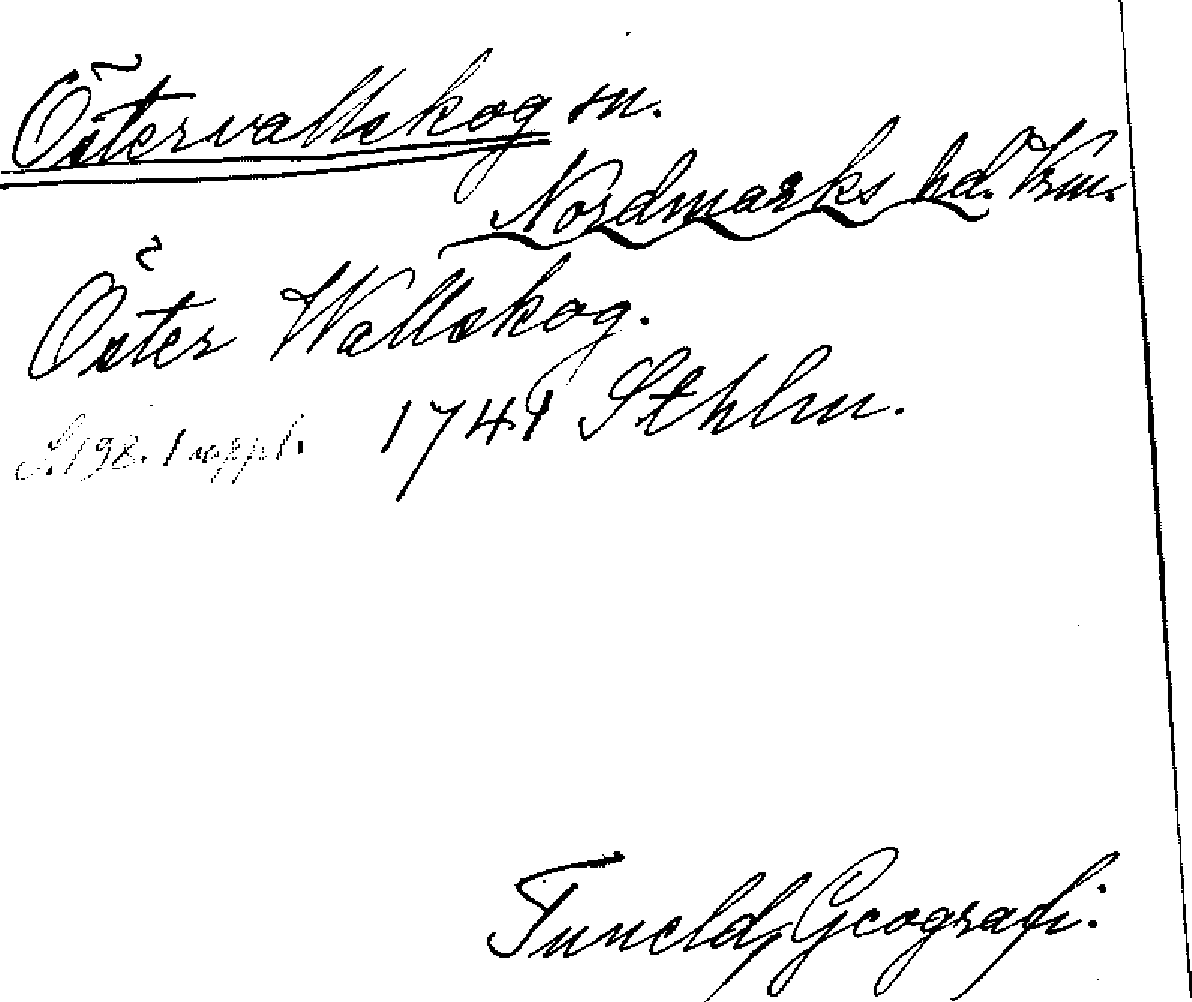 Östervallskog sn.
Nordmarks hd. Vrm.
Öster Wallskog.
1741 Sthlm.
S. 198. 1 uppl.
Tuneld, Geografi.